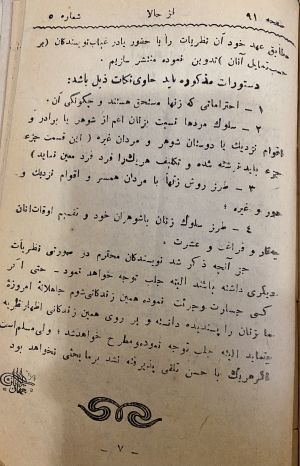 صفحه ۹۱ از حالا شماره ۵
مطابق عهد خود آن نظریات را با حضور یادر غیاب نویسندگان (بر
حسب تمایل آنان) تدوین نموده منتشر سازیم .
دستورات مذکوره باید حاوی نکات ذیل باشد:
۱ – احتراماتی که زنها مستحق هستند و چگونگی آن .
۲ – سلوك مردها نسبت بزنان اعم از شوهر یا برادر و
اقوام نزدیك یا دوستان شوهر و مردان غیره ( این قسمت جزء
جزء باید نوشته شده و تکلیف هریك را فرد فرد معین نماید )
۳ – طرز روش زنها با مردان همسر و اقوام نزدیك و
دور و غیره ؛
۴ – طرز سلوك زنان باشوهران خود و تقسیم اوقات آنان
و فراغت و عشرت .
جز آنچه ذکر شد نویسندگان محترم در صورتی نظریات
دیگری داشته باشند البته جلب توجه خواهد نمود – حتی اگر
کسی جسارت وجرئت نموده همین زندگانی شوم جاهلانهٔ امروزهٔ
ما زنان را پسندیده دانسته و بر روی همین زندگانی اظهار نظریه
نماید البته جلب توجه نموده ومطرح خواهدشد ؛ ولی مسلم است
اگر هریك با حسن تلقی پذیرفته نشد برما بحثی نخواهد بود
– ۷ –